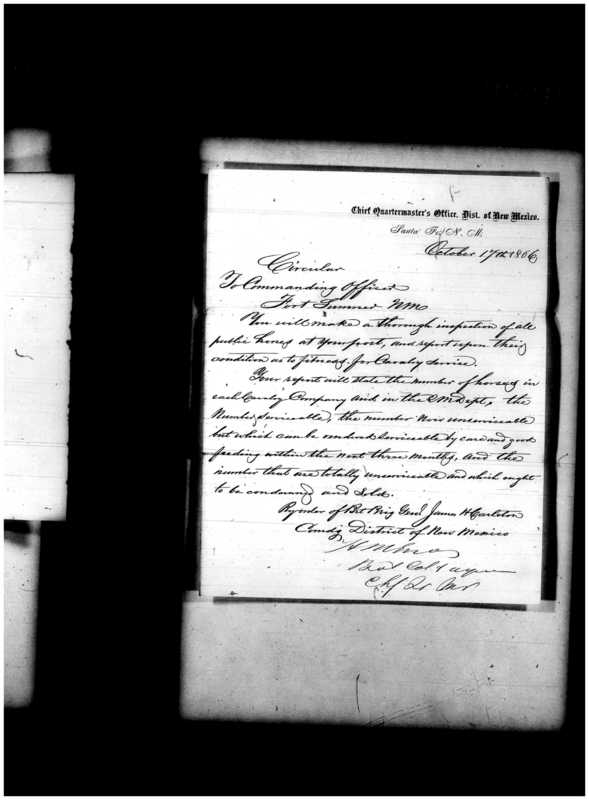 Chief Quartermaster's Office, Dist. of New Mexico.
Santa Fe, N. M.
October 17th 1866
Circular
To Commanding Officer
Fort Sumner NM
You will make a thorough inspection of all
public horses at your post, and report upon their
condition as to fitness for Cavalry service.
Your report will state the number of horses in
each Cavalry Company and in the QM Dept, the
Number serviceable, the number Now unserviceable
but which can be rendered serviceable by care and good
feeding within the next three months, And the
number that are totally unserviceable and which ought
to be condemned and Sold.
By order of Bvt Brig Genl James H Carleton
Comdg District of New Mexico
H M Enos
Bvt Col & a q m
Chf Qr Mr